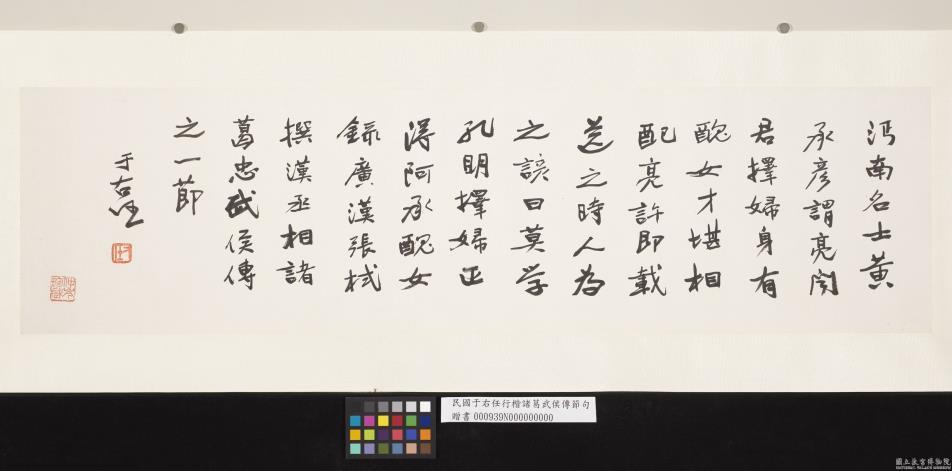 沔南名士黃
承彥謂亮聞
君擇婦身有
醜女才堪相
配亮許即載
送之時人為
之諺曰莫学
孔明擇婦正
得阿承醜女
錄廣漢張栻
撰漢丞相諸
葛忠武侯傳
之一節
于右任
民國于右任行楷諸葛武侯傳節句
贈書000939N000000000
國立故宮博物院